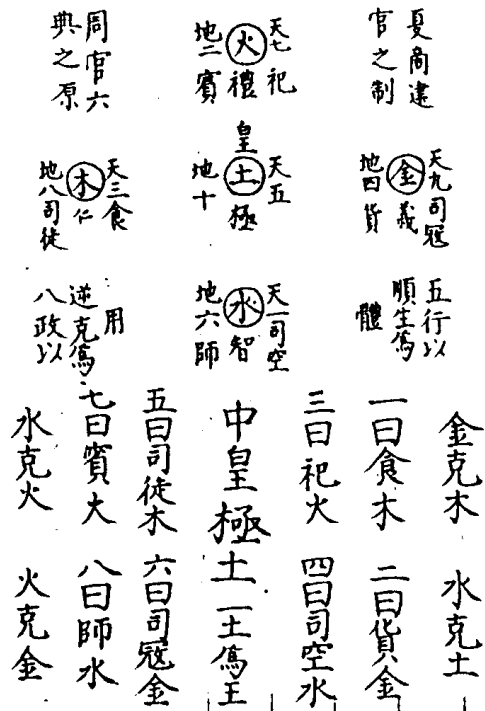 夏商建
官之制
天七祀
火禮
地二賓
周官六
典之原
天九司寇
金義
地四貨
天五
皇土極
地十
天三食
木仁
地八司徒
五行以
順生爲
體
天一司空
水智
地六師
用
逆克爲
八政以
金克木
水克土
一曰食木
二曰貨金
三曰祀火
四曰司空水
中皇極土
一土爲王
五曰司徒木
六曰司寇金
七曰賓大
八曰師水
水克火
火克金